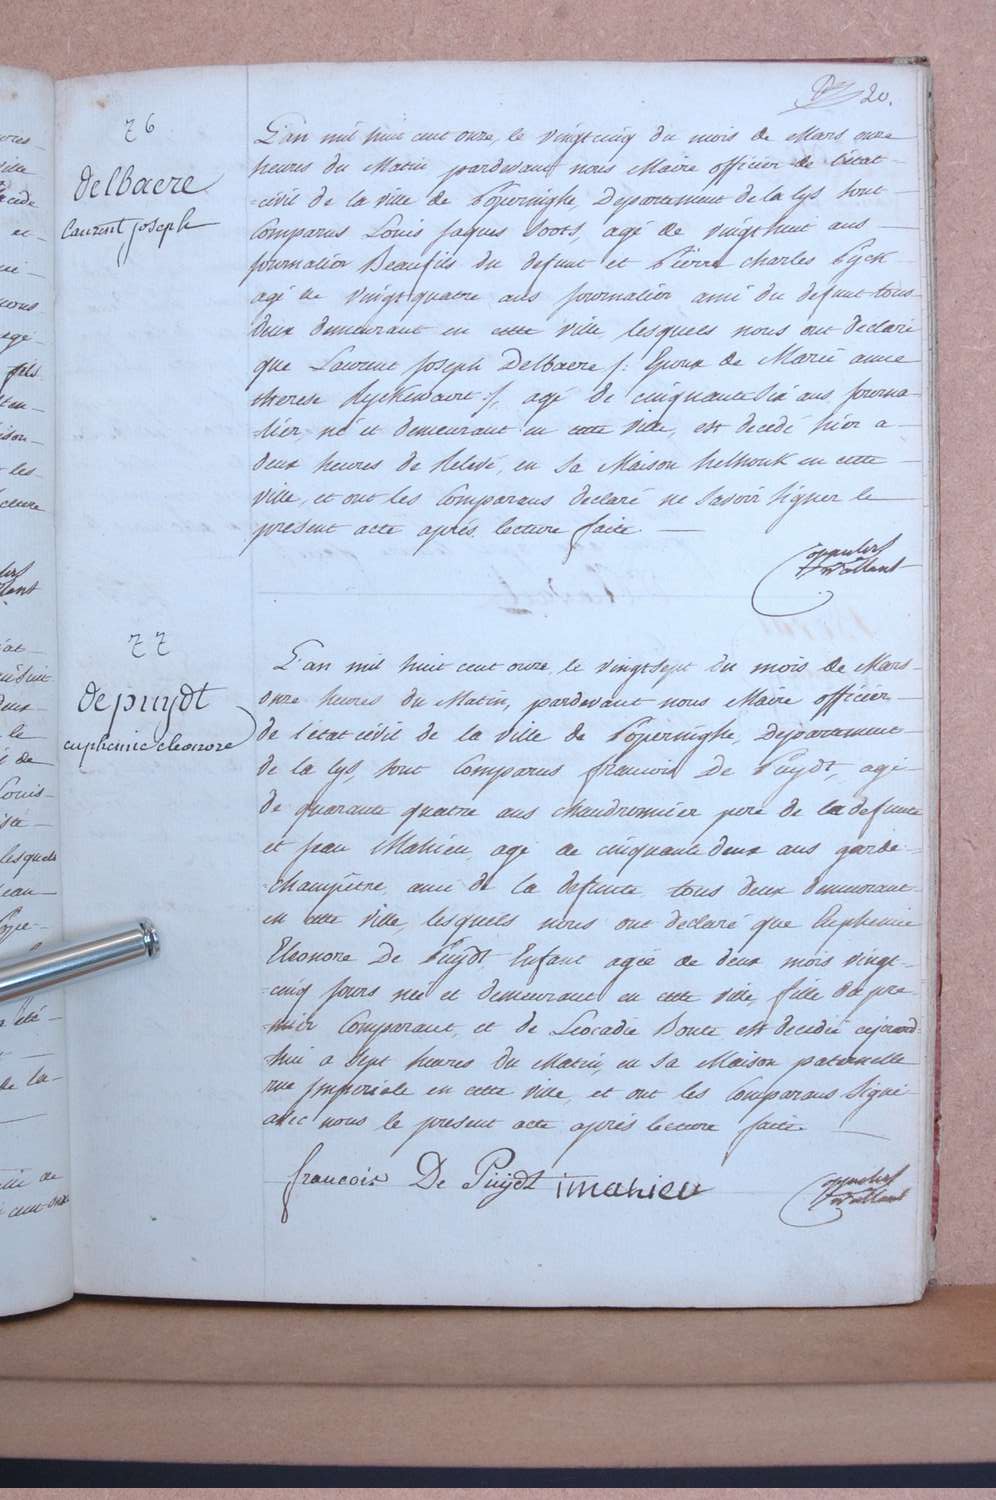 20.
76
delbaere
laurent joseph
L'an mil huit cent onze, le vingtcinq du mois de Mars onze
heures du Matin pardevant nous Maire officier de l'état
civil de la ville de Poperinghe, Département de la lys sont
Comparus Louis Jaques Soots, agé de vingthuit ans
journalier Beaufils du defunt et Pierre Charles Pyck
agé de vingtquatre ans journalier ami du defunt tous
deux demeurant en cette ville, lesquels nous ont declaré
que Laurent Joseph Delbaere /: Epoux de Marie anne
therese Ryckewaert :/, agé de cinquante six ans, journa-
-lier, né et demeurant en cette ville, est decedé hier a
deux heures de Relevé, en sa Maison helhouk en cette
ville, et ont les Comparans declaré ne savoir signer le
present acte aprés lecture faite.
77
depuydt
euphemie eleonore
L'an mil huit cent onze, le vingtsept du mois de Mars
onze heures du Matin, pardevant nous Maire officier
de l'état civil de la ville de Poperinghe, Département
de la lys, sont Comparus francois De Puydt, agé
de quarante quatre ans chaudronnier pere de la defunte
et Jean Mahieu, agé de cinquante deux ans garde
-champêtre, ami de la defunte tous deux demeurant
en cette ville, lesquels nous ont declaré que Euphemie
Eleonore De Puydt, Enfant agée de deux mois vingt-
-cinq jours neé et demeurant en cette ville, fille du pre-
-mier Comparant, et de Leocadie Bonte est decedée cejourd-
-hui a sept heures du Matin, en sa Maison paternelle
rue Imperiale en cette ville, et ont les Comparans signé
avec nous le present acte aprés lecture faite.
francois De Puydt imahieu